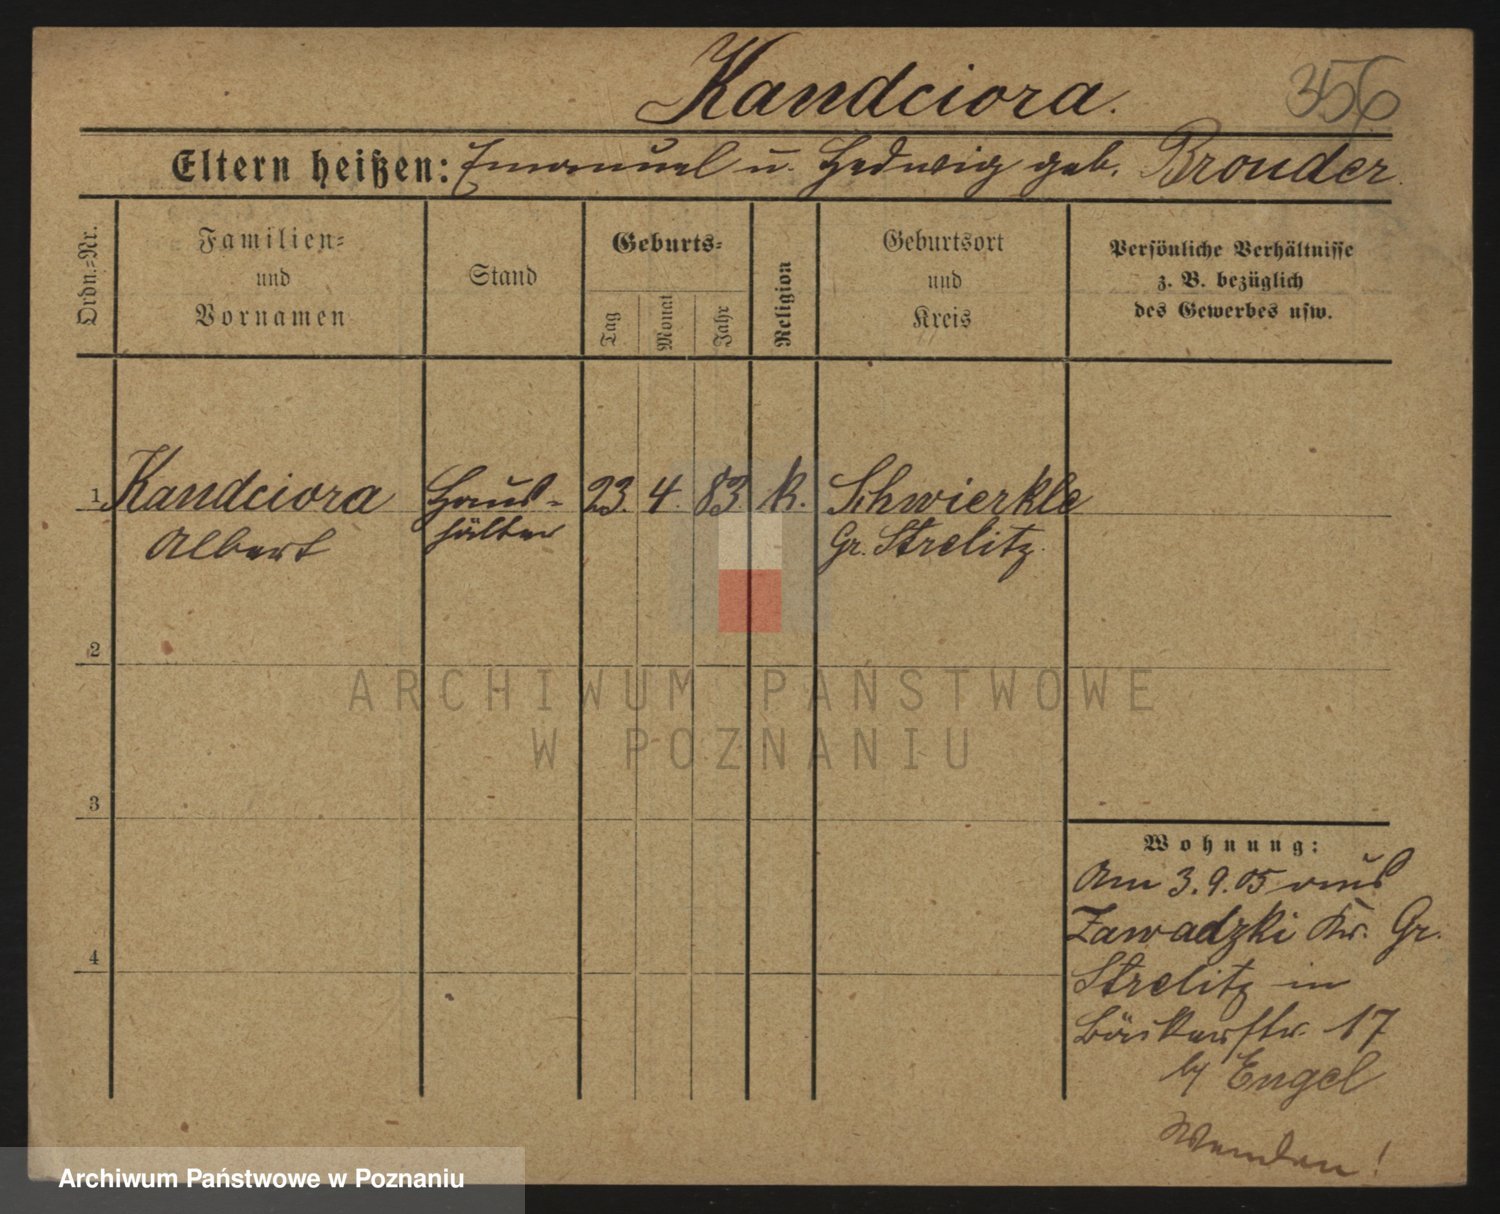 Kandciora.
356
Eltern heißen: Emanuel u. Hedwig geb. Brouder.
Ordn.-Nr.
Familien-
und
Vornamen
Stand
Geburts-
Tag
Monat
Jahr
Religion
Geburtsort
und
Kreis
Persönliche Verhältnisse
z. B. bezüglich
des Gewerbes usw.
1 Kandciora Haus- 23. 4. 83. k. Schwierkle
Albert hälter Gr. Strelitz.
2
ARCHIWUM PAŃSTWOWE
W POZNANIU
3
Wohnung:
Am 3.9.05 aus
Zawadzki Kr. Gr.
Strelitz in
Bäckerstr. 17
by Engel
4
Wenden!
Archiwum Państwowe w Poznaniu